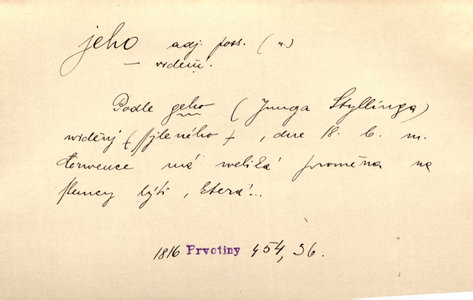 jeho adj. poss. (n.)
— viděnie.
Podle geho (Junga Styllinga)
widěnj (ssjleného), dne 18. b. m.
července má weliká proměna na
sluncy býti, která!..
1816 Prvotiny 454, 36.